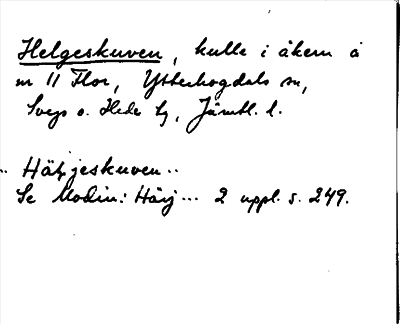 Helgeskuven, kulle i åkern å
nr 11 Flor, Ytterhogdals sn,
Svegs o. Hede tg, Jämtl. l.
.. Häljeskuven ..
Se Modin: Härj... 2 uppl. s. 249.